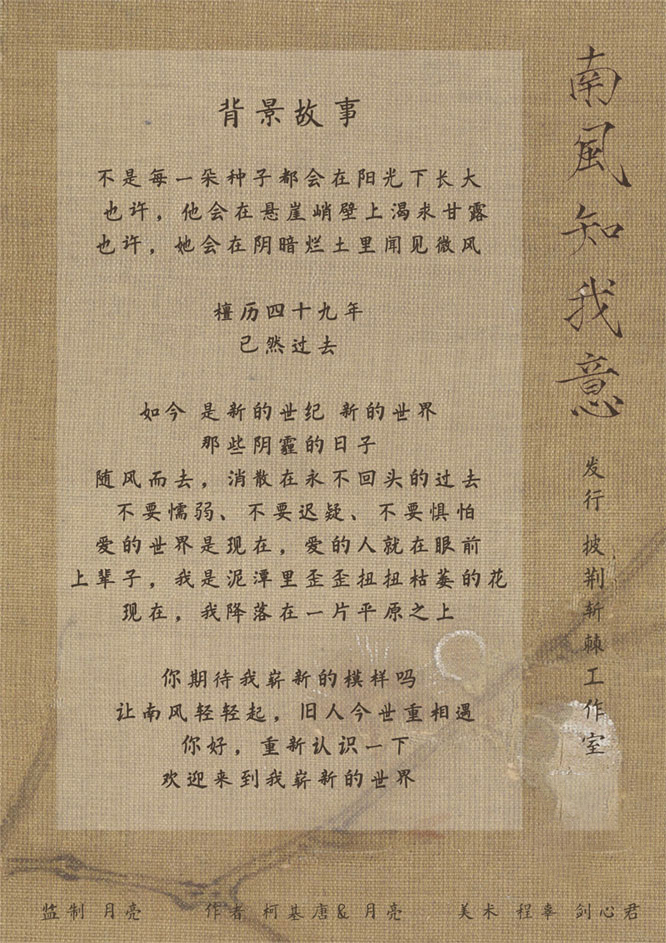 南風知我意
发行 披荆斩棘工作室
背景故事
不是每一朵种子都会在阳光下长大
也许，他会在悬崖峭壁上渴求甘露
也许，她会在阴暗烂土里闻见微风
檀历四十九年
已然过去
如今 是新的世纪 新的世界
那些阴霾的日子
随风而去，消散在永不回头的过去
不要懦弱、不要迟疑、不要惧怕
爱的世界是现在，爱的人就在眼前
上辈子，我是泥潭里歪歪扭扭枯萎的花
现在，我降落在一片平原之上
你期待我崭新的模样吗
让南风轻轻起，旧人今世重相遇
你好，重新认识一下
欢迎来到我崭新的世界
监制 月亮 作者 柯基唐& 月亮 美术 程辜 剑心君